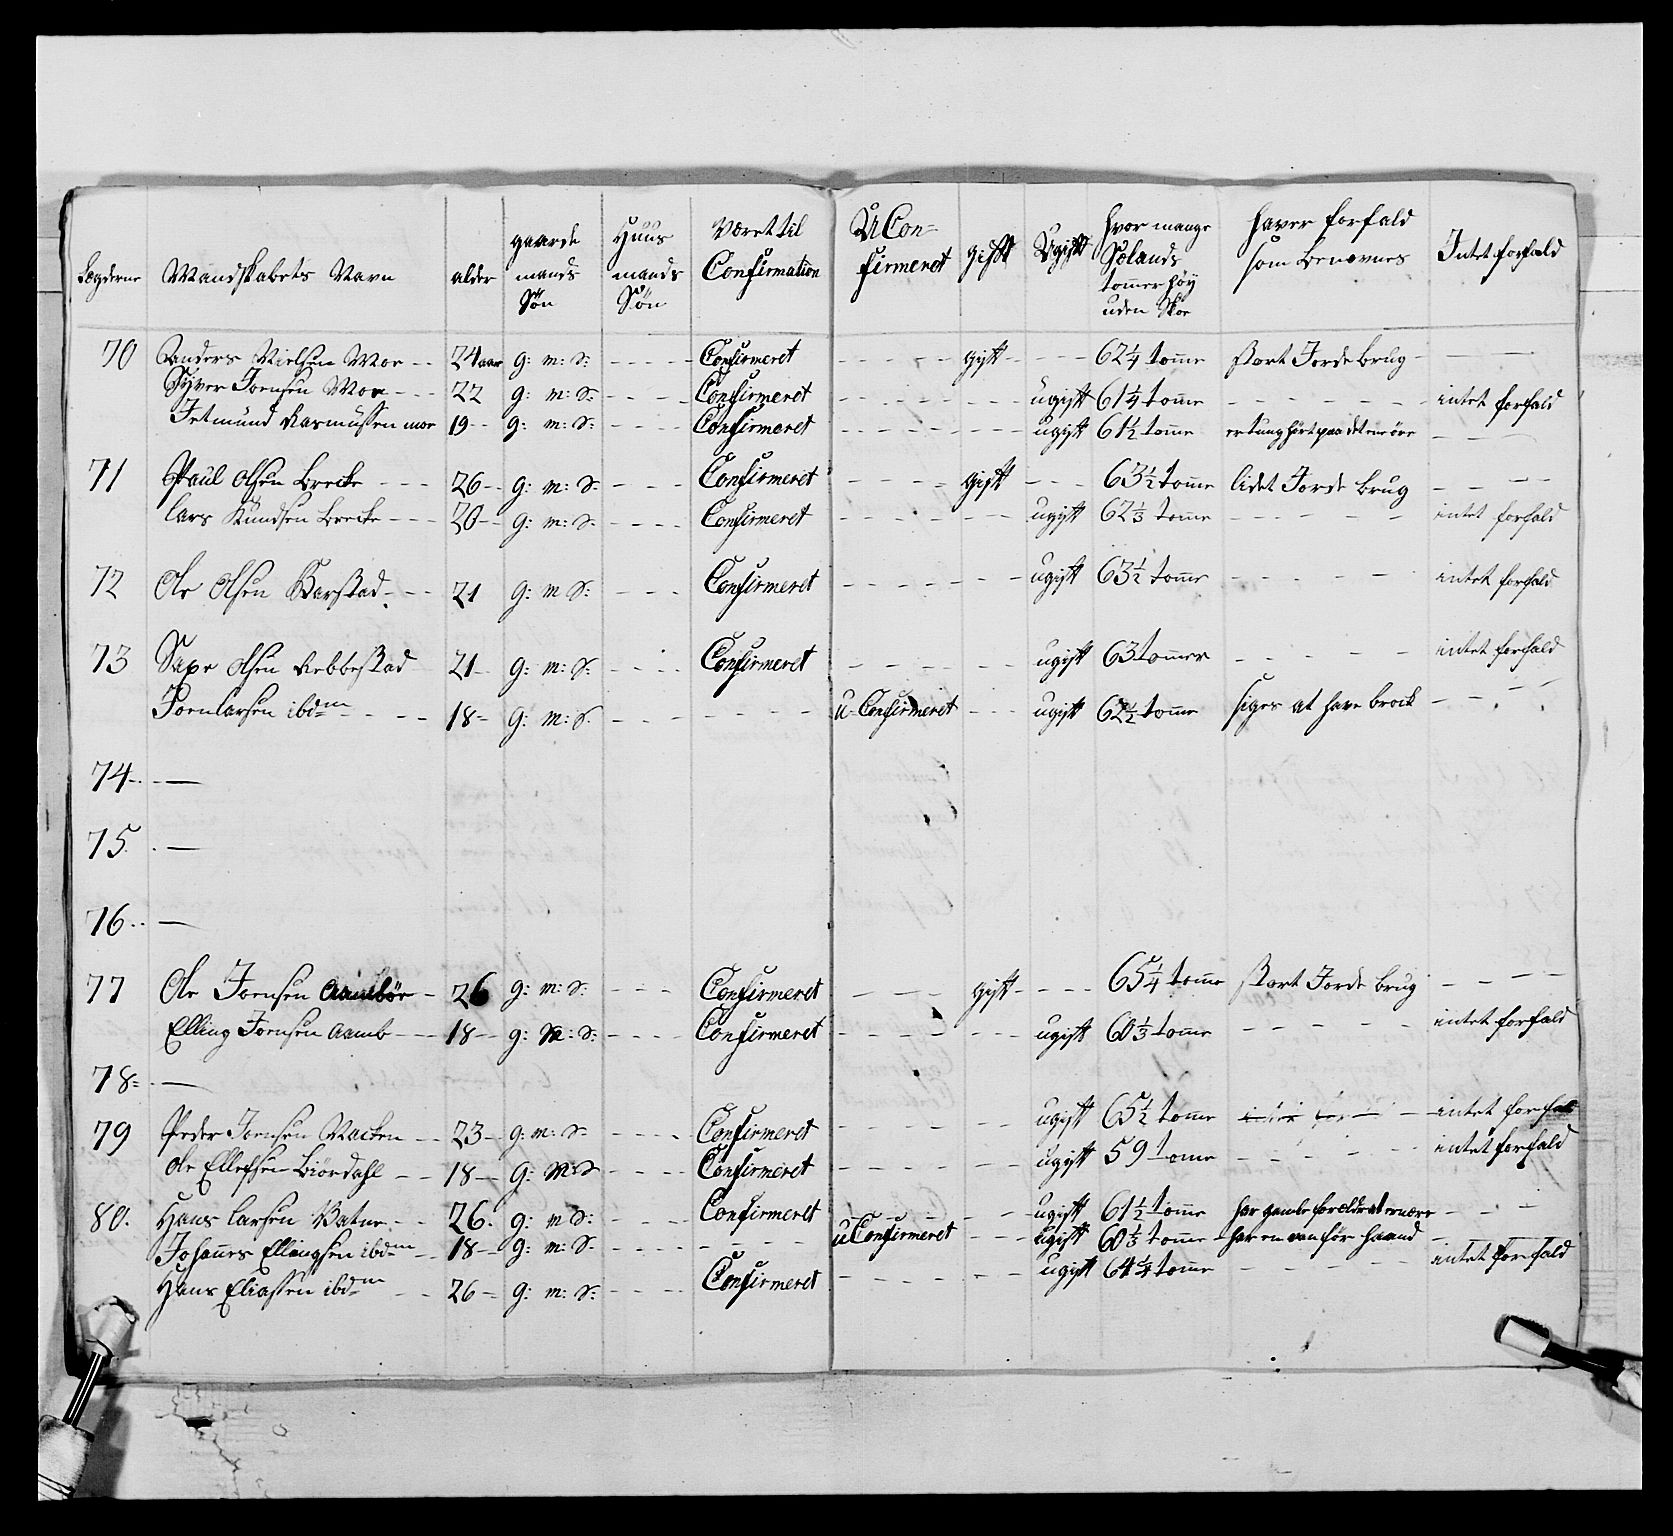 Lægderne | Mandskabets Navn | alder | gaarde mands Søn | Huus mands Søn | Været til Confirmation | U Con= firmeret | gift | Ugift | hvor mange Sælands tomer høy uden Skoe | haver forfald som benævnes | Intet forfald
70 Anders Nielsen Moe -- 24 aar g: m: S: - - - - Confirmeret - - - - - gift - - - - 62¼ tomme stort Jorde brug - -
Syver Joensen Moe - - - 22 g: m: S: - - - - Confirmeret - - - - - - - - ugift 61¼ tomme - - - - - - intet forfald
Jetmund Rasmussen moe 19 - - g: m: S: - - - - Confirmeret - - - - - - - - ugift 61½ tomme er tung hört paa det ene öre - - -
71 Paul Olsen Brecke - - - 26 - - g: m: S: - - - Confirmeret - - - - gift - - - 63½ tomme lidet Jorde brug - - - -
Lars Knudsen Brecke - - - 20 - - g: m: S: - - - - Confirmeret - - - - - - ugift 62⅓ tomme - - - - - intet forfald
72 Ole Olsen Karstad - - - 21 g: m S: - - - Confirmeret - - - - - - - ugift 63½ tomme - - - - intet forfald
73 Saxe Olsen Aebbestad 21 - g: m: S: - - - Confirmeret - - - - - - ugift 63 tommer - - - - - intet forfald
Joen Larsen ibdm - - - - 18 - g: m: S. - - - - - - - u-Confirmeret - - - ugift 62½ tomme siges at have brock - - - -
74 - - —
75. . —
76 . . —
77 Ole Joensen - 26 g: m: S: - - - Confirmeret - - - gift - - - - 65¼ tomme stort Jorde brug - - - -
Elling Joensen Aamb - - - 18 - - g: m: S: - - - - Confirmeret - - - - - - ugift 60⅓ tomme - - - - - intet forfald
78 = . —
79 Peder Joensen Macken - - 23 - g: m: S: - - - - Confirmeret - - - - - - ugift 65½ tomme - intet forfald
Ole Ellefsen Biördahl - - 18 - - g: m: S - - - - Confirmeret - - - - - - ugift 59 tome - - - - - intet forfald
80. Hans Larsen Vatne - - 26. g: m S: - - - - Confirmeret - - - - - ugift 61½ tomme har gamle forældre at ernære - - -
Johannes Ellingsen ibdm - - 18 - - g: m: S: - - - - - - - u Confirmeret - - - ugift 60⅓ tomme - har en vanför haand -
Hans Eliassen ibdm - - 26 - g: m: S: - - - - Confirmeret - - - - - - ugift 64¼ tomme - - - - - intet forfald